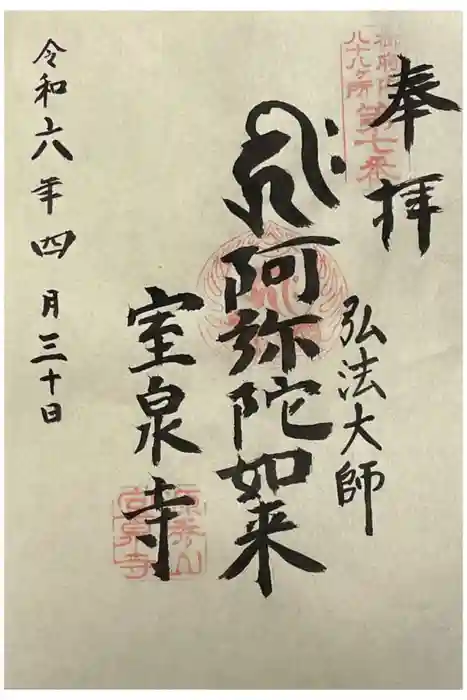 奉拝
御府内
八十八ヶ所
第七番
弘法大師
阿弥陀如来
室泉寺
令和六年四月三十日